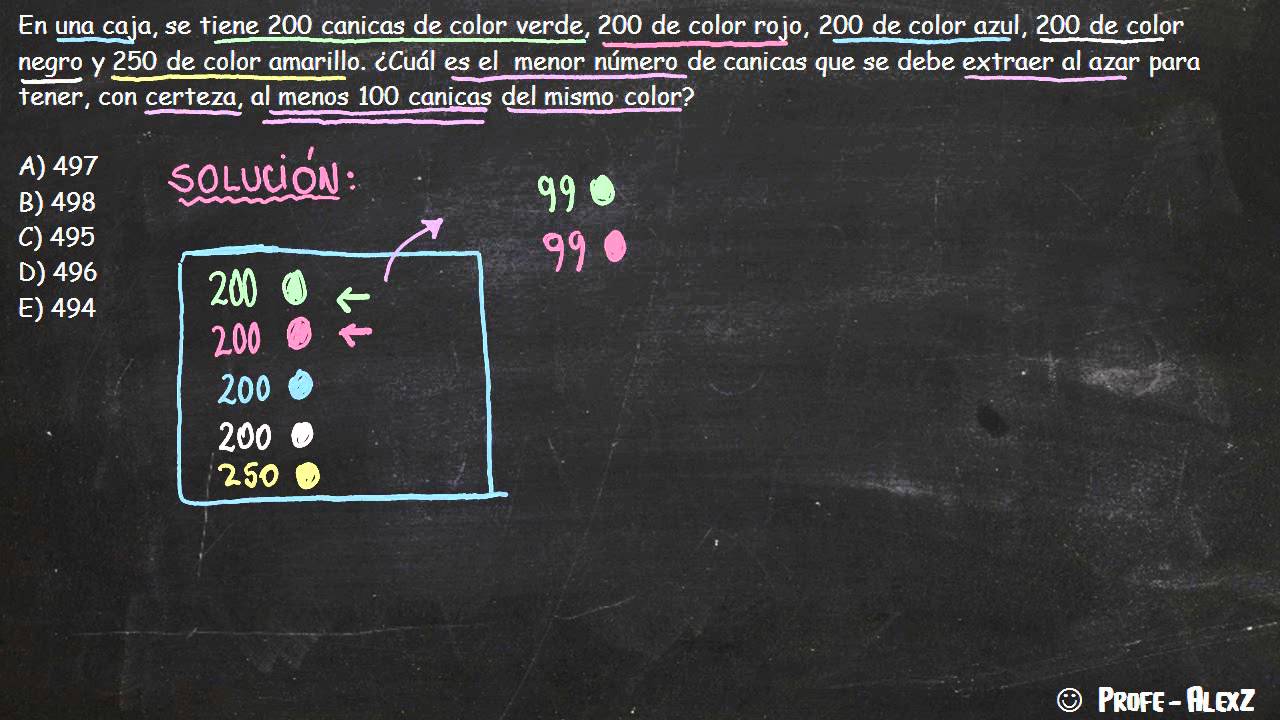 En una caja, se tiene 200 canicas de color verde, 200 de color rojo, 200 de color azul, 200 de color
negro y 250 de color amarillo. ¿Cuál es el menor número de canicas que se debe extraer al azar para
tener, con certeza, al menos 100 canicas del mismo color?
A) 497
B) 498
C) 495
D) 496
E) 494
SOLUCIÓN:
200
200
200
200
250
99
99
☺ PROFE - ALEXZ